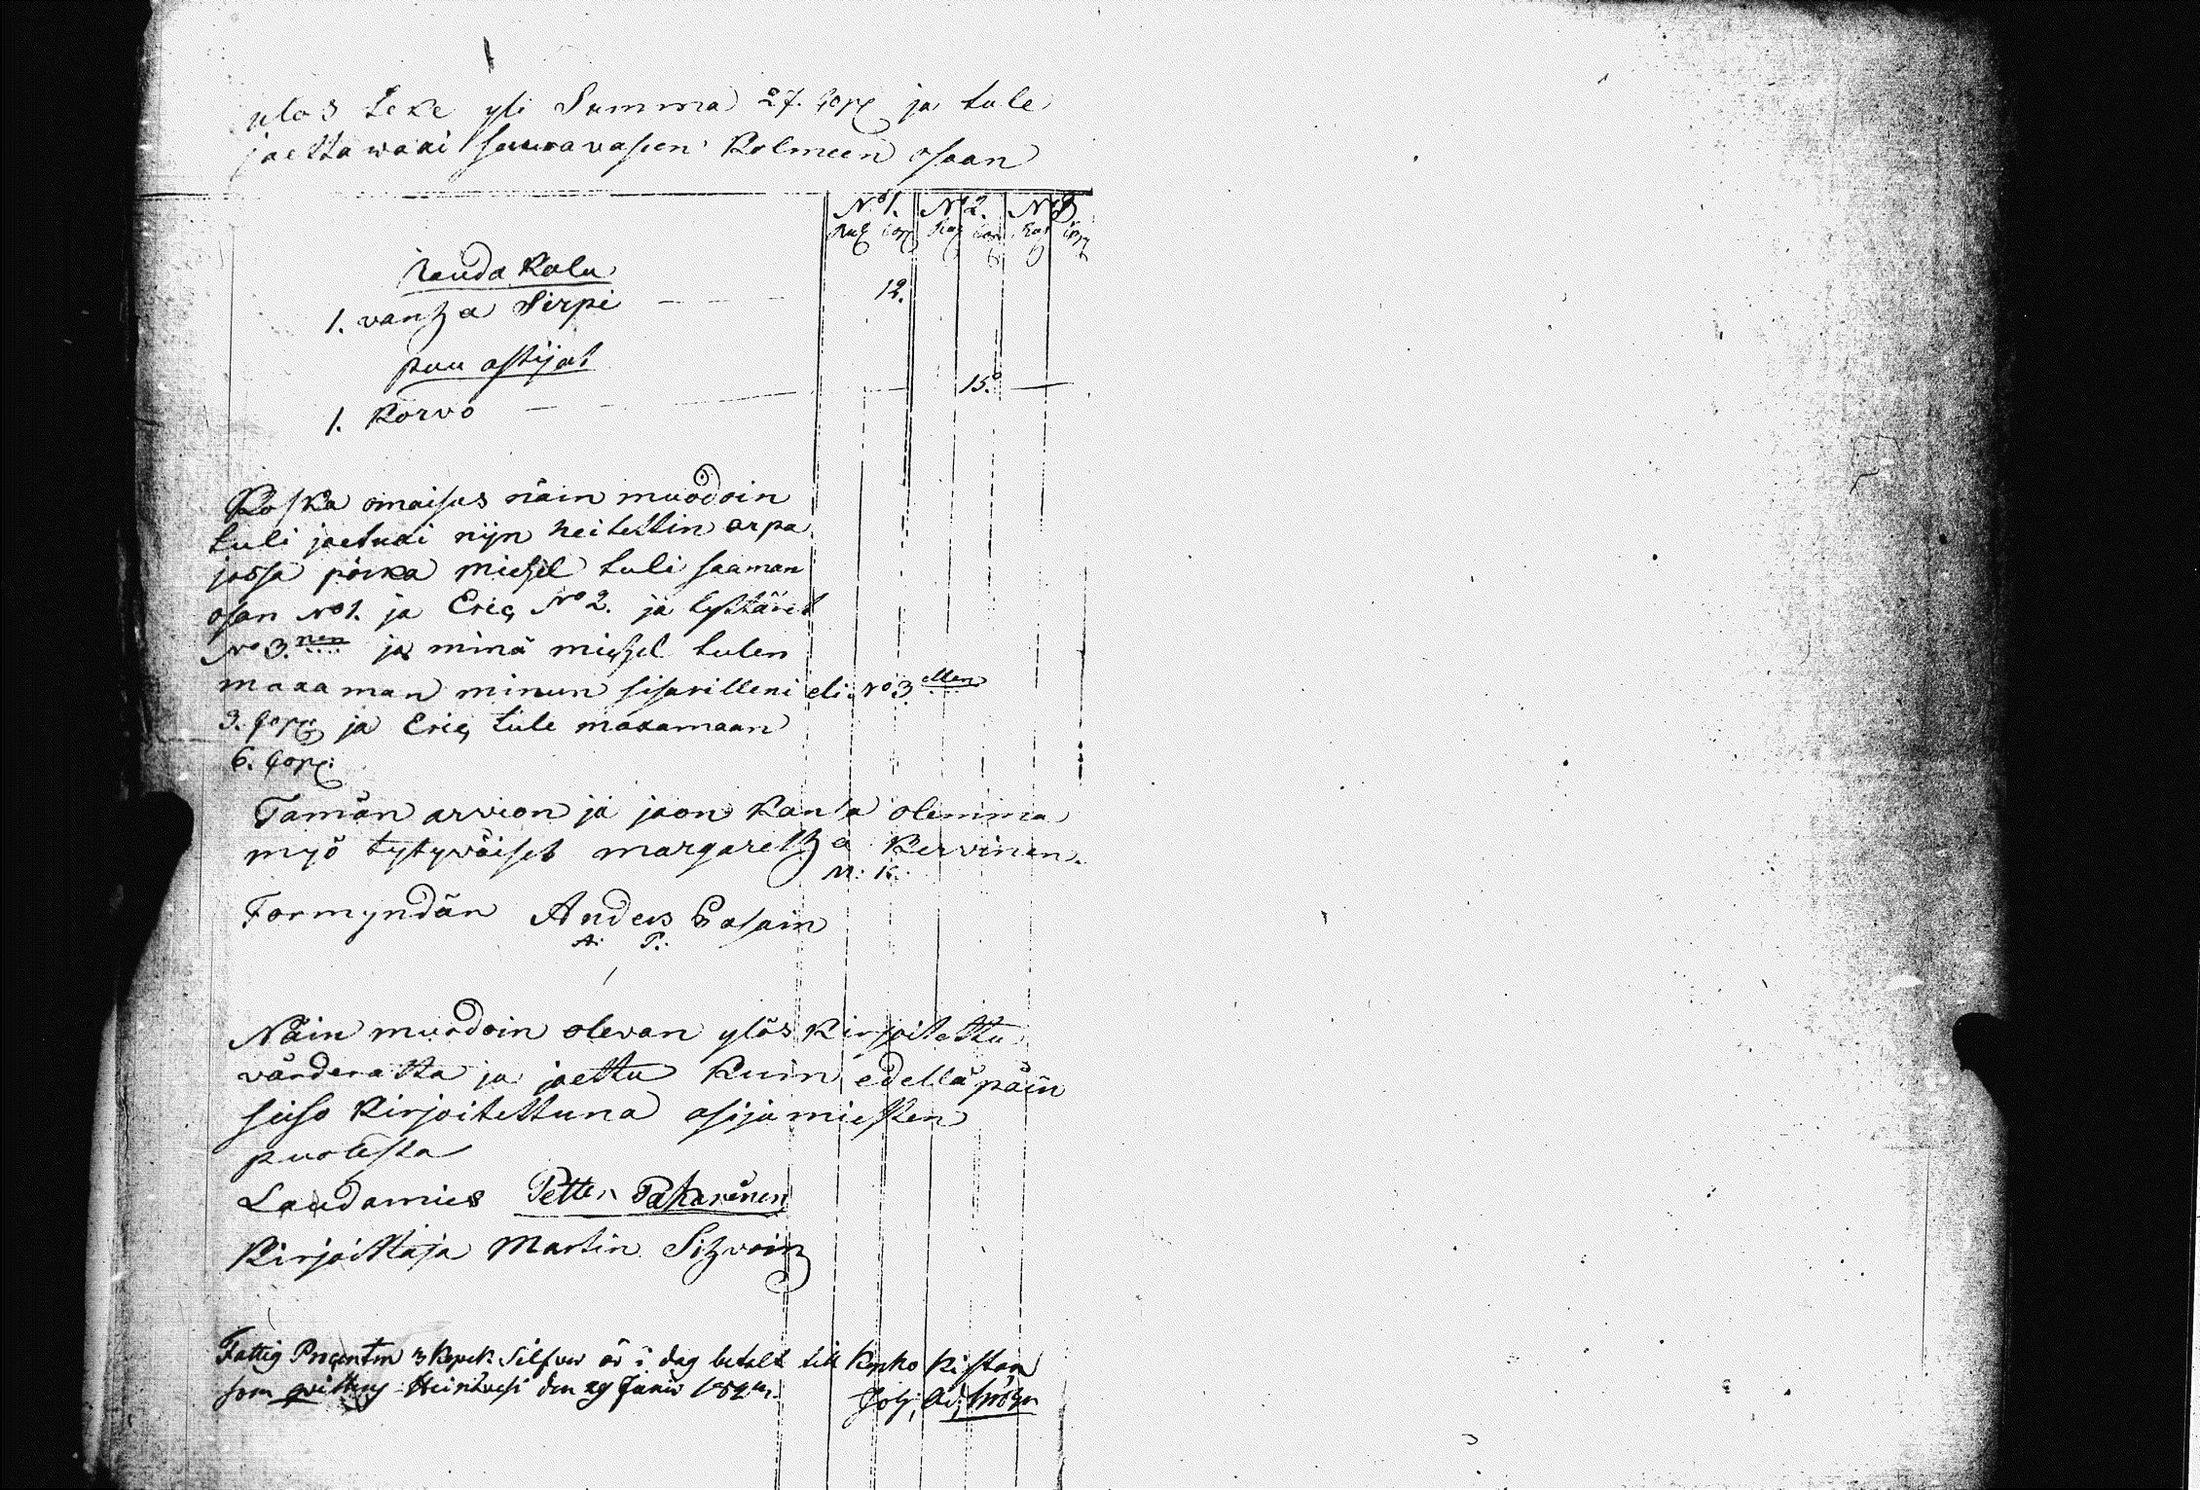 ulos teke yli Summa 27. Cop ja tule
jaettawaxi seuravasen Kolmeen osaan
No 1. No 2. No 3
Rup Cop Rup Cop Rup Cop
Rauda Kalu
1. vanha Sirpi 12.
puu astijat
1. Korvo 15.
Koska omaisus näin muodoin
tuli jaetuxi nijn heitettin arpa
jossa poika Michel tuli saaman
osan No 1. ja Eric No 2. ja tyttäret
No 3.nen ja minä michel tulen
maxaman minun sisarilleni eli No 3ellen
3. Cop ja Eric tule maxamaan
6. Cop:
Tämän arvion ja jaon Kansa olemma
myö tytyväiset margaretha Kervinen.
M. K.
Formyndän Anders Pasain
A. P.
Näin muodoin olevan ylös Kirjoitettu
värderattu ja jaettu Kuin edellä päin
seiso Kirjoitettuna asijamiesten
puolesta
Laudamies Petter Pakarinen
Kirjoittaja Martin
Fattig Procenten 3 Kopek Silfver är i dag betalt till Kyrko Kistan
som qvitteras Heinävesi den 29 Junii